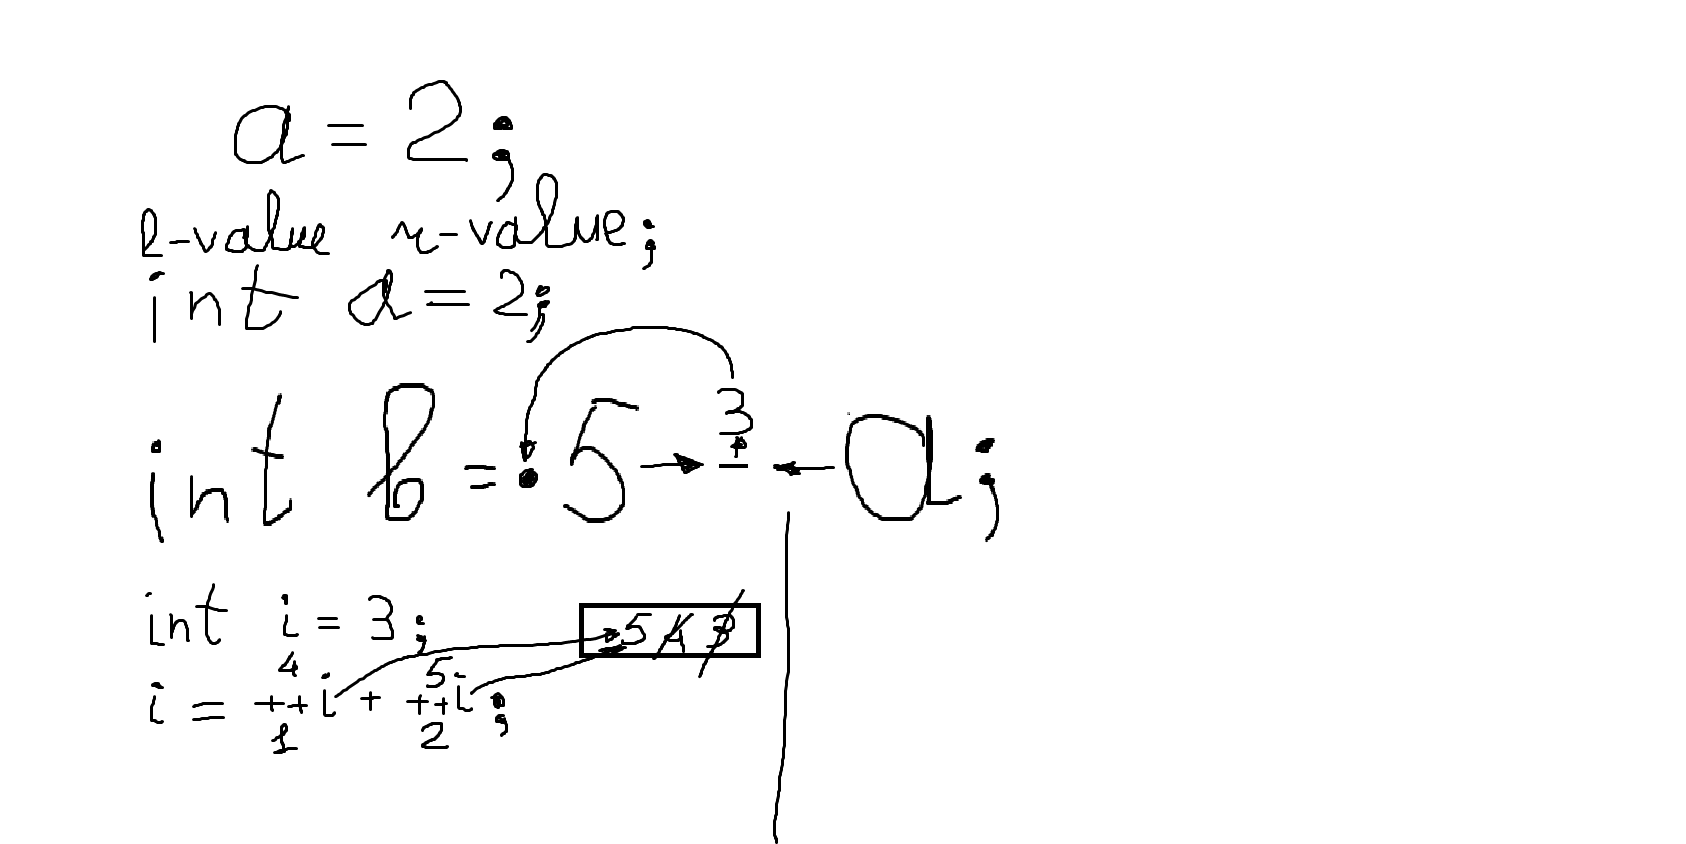 a = 2;
l-value r-value;
int a = 2;
3
int b = 5 - a;
int i = 3;
5 4 3
4 5
i = ++i + ++i;
1 2